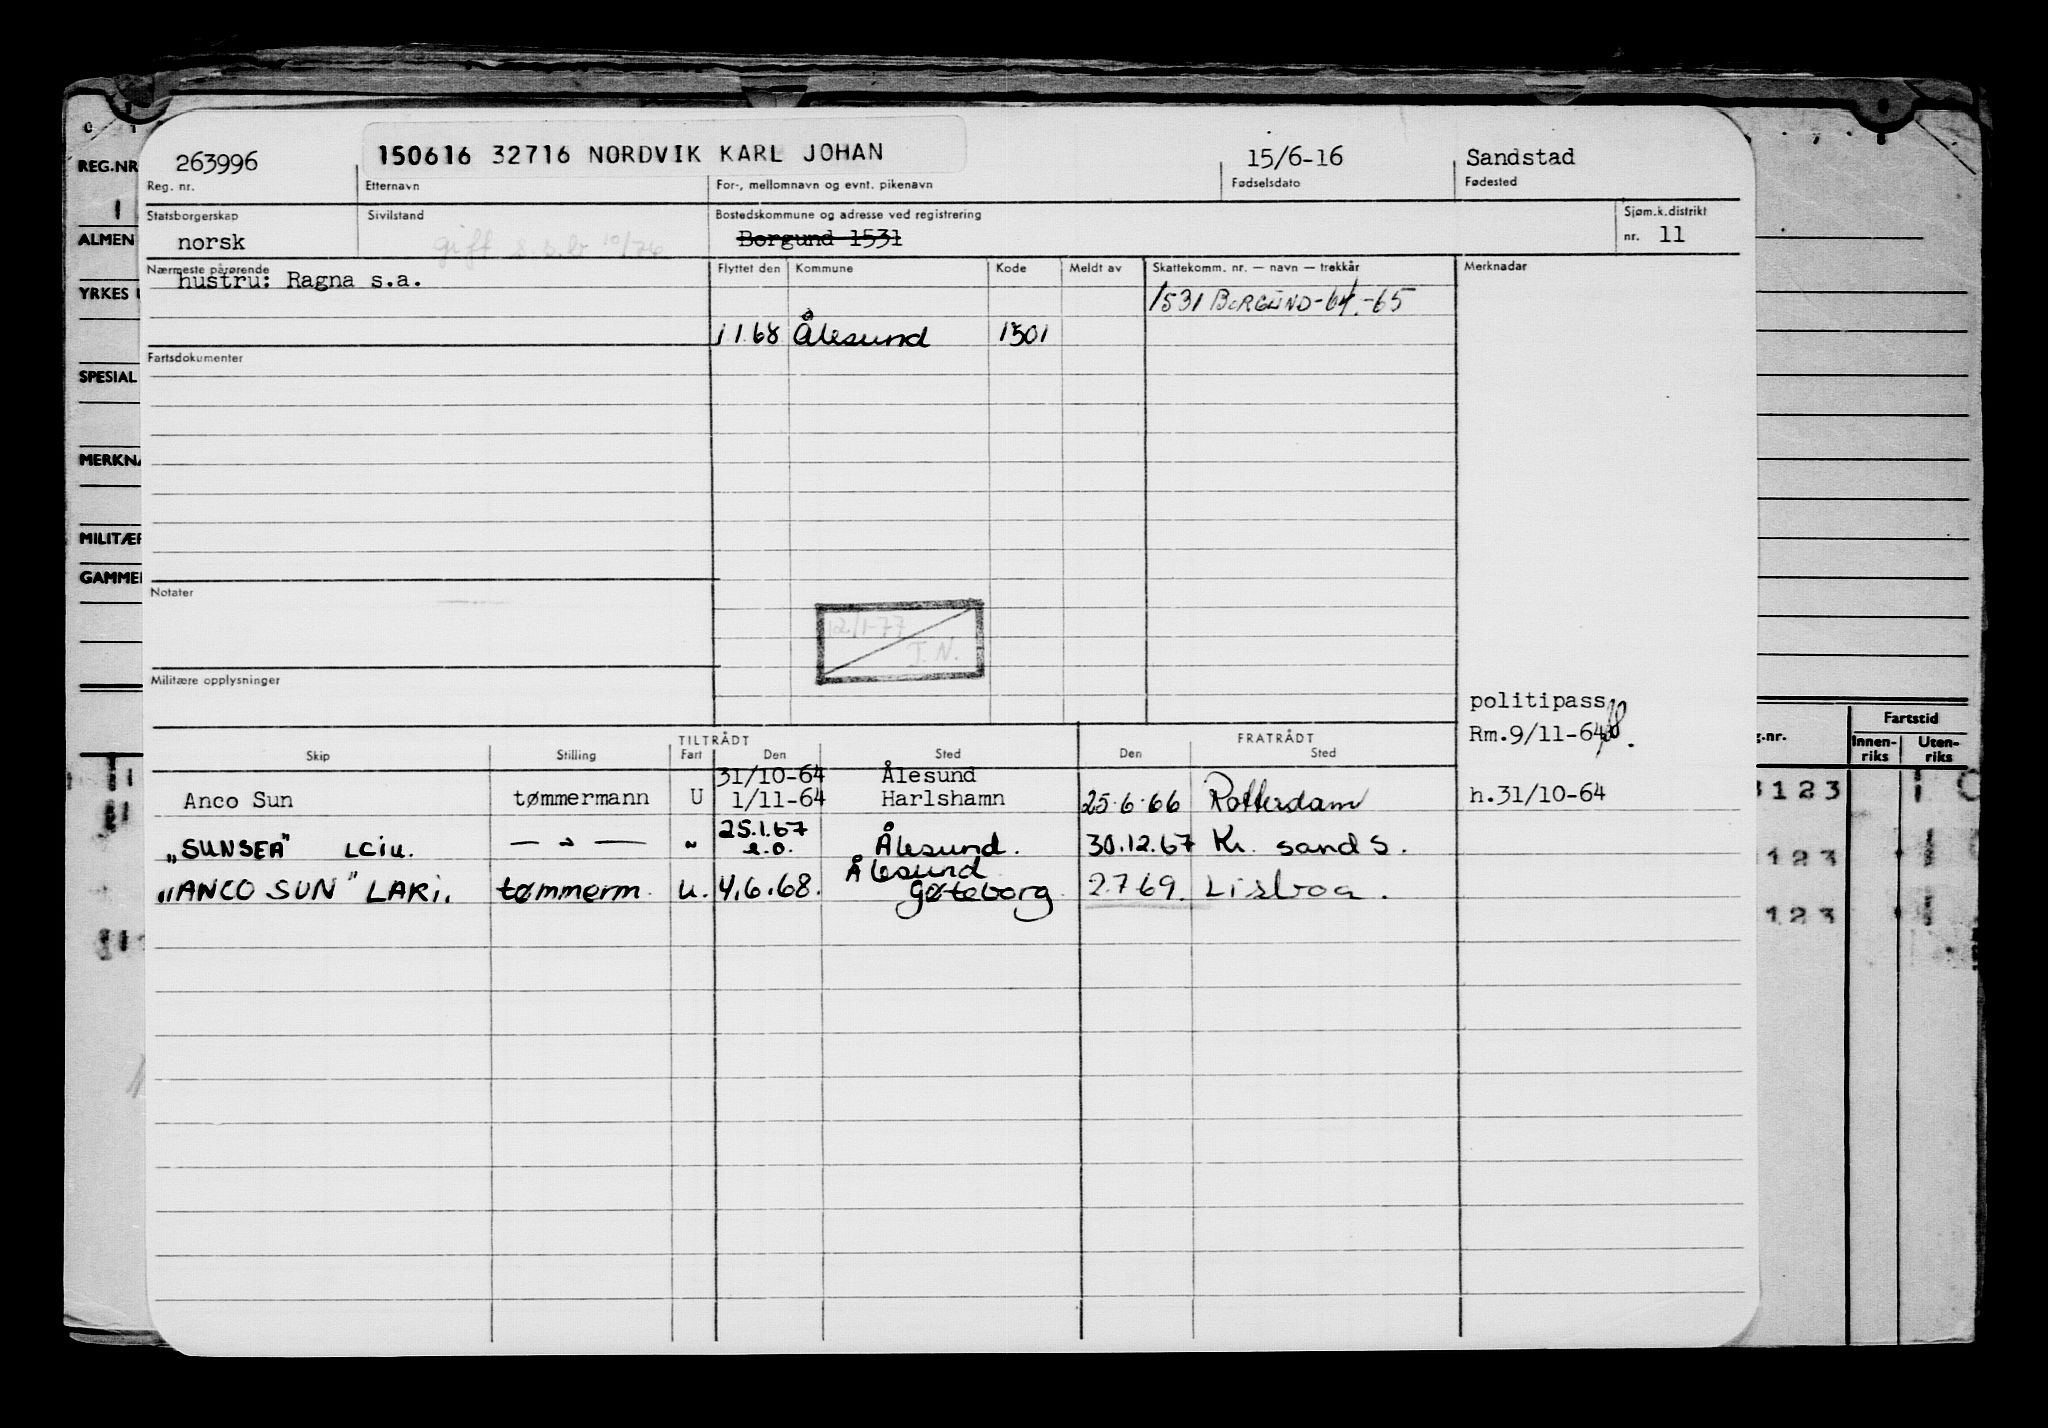 263996 150616 32716 NORDVIK KARL JOHAN 15/6-16 Sandstad
REG.NR Reg. nr. Etternavn For-, mellomnavn og evnt. pikenavn Fødselsdato Fødested
Statsborgerskap Sivilstand Bostedskommune og adresse ved registrering Sjøm.k.distrikt
ALMEN norsk gift Borgund 1531 nr. 11
Nærmeste pårørende Flyttet den Kommune Kode Meldt av Skattekomm. nr. — navn — trekkår Merknadar
hustru: Ragna s.a.
YRKES 1531 BORGUND-64.-65
1 1.68 Ålesund 1501
Fartsdokumenter
SPESIAL
MERKNA
MILITÆR
GAMMEL
Notater
12/1-77
J. N.
Militære opplysninger
politipass
Rm.9/11-64
TILTRÅDT FRATRÅDT Fartstid
Skip Stilling Fart Den Sted Den Sted g.nr. Innen-riks Uten-riks
31/10-64 Ålesund
Anco Sun tømmermann U 1/11-64 Harlshamn 25.6.66 Rotterdam h.31/10-64 3123
25.1.67
„SUNSEA" LCIU. — " — " e.o. Ålesund. 30.12.67 Kr. sand S. 123
Ålesund
„ANCO SUN" LARI. tømmerm. u. 4.6.68. Gøteborg 2.7 69. Lisboa. 123